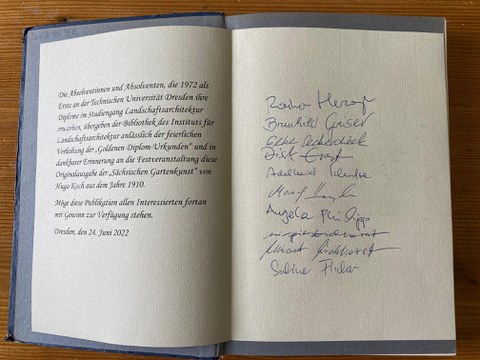 Die Absolventinnen und Absolventen, die 1972 als
Erste an der Technischen Universität Dresden ihre
Diplome im Studiengang Landschaftsarchitektur
erwarben, übergeben der Bibliothek des Instituts für
Landschaftsarchitektur anlässlich der feierlichen
Verleihung der „Goldenen Diplom-Urkunden“ und in
dankbarer Erinnerung an die Festveranstaltung diese
Originalausgabe der „Sächsischen Gartenkunst“ von
Hugo Koch aus dem Jahre 1910.
Möge diese Publikation allen Interessierten fortan
mit Gewinn zur Verfügung stehen.
Dresden, den 24. Juni 2022
Brunhild
Dirk
Angela Philipp
Sabine